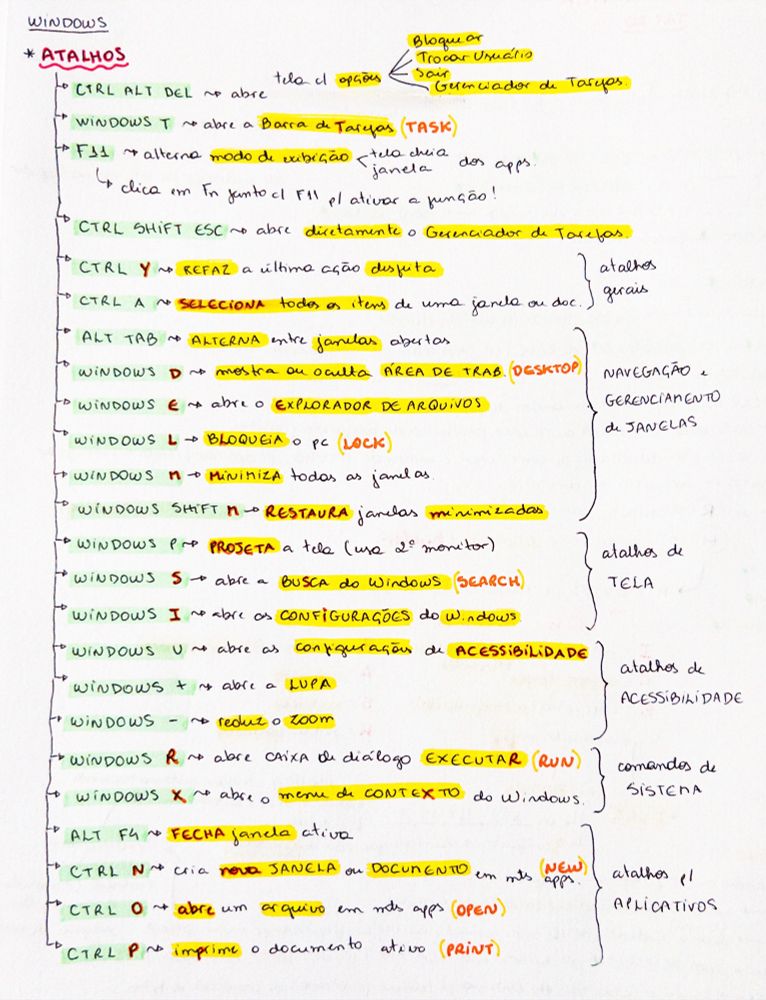 WINDOWS
* ATALHOS
CTRL ALT DEL ~> abre tela c/ opções
Bloquear
Trocar Usuário
Sair
Gerenciador de Tarefas.
WINDOWS T ~> abre a Barra de Tarefas (TASK)
F11 ~> alterna modo de exibição < tela cheia janela dos apps.
↳ clica em Fn junto c/ F11 p/ ativar a função!
CTRL SHIFT ESC ~> abre diretamente o Gerenciador de Tarefas.
CTRL Y ~> REFAZ a última ação desfeita
CTRL A ~> SELECIONA todos os itens de uma janela ou doc.
atalhos
gerais
ALT TAB ~> ALTERNA entre janelas abertas
WINDOWS D ~> mostra ou oculta ÁREA DE TRAB. (DESKTOP)
WINDOWS E ~> abre o EXPLORADOR DE ARQUIVOS
WINDOWS L ~> BLOQUEIA o pc (LOCK)
WINDOWS M ~> MINIMIZA todas as janelas.
WINDOWS SHIFT M ~> RESTAURA janelas minimizadas
NAVEGAÇÃO e
GERENCIAMENTO
de JANELAS
WINDOWS P ~> PROJETA a tela (usa 2º monitor)
WINDOWS S ~> abre a BUSCA do Windows (SEARCH)
WINDOWS I ~> abre as CONFIGURAÇÕES do Windows
atalhos de
TELA
WINDOWS U ~> abre as configuração de ACESSIBILIDADE
WINDOWS + ~> abre a LUPA
WINDOWS - ~> reduz o zoom
atalhos de
ACESSIBILIDADE
WINDOWS R ~> abre CAIXA de diálogo EXECUTAR (RUN)
WINDOWS X ~> abre o menu de CONTEXTO do Windows.
comandos de
SISTEMA
ALT F4 ~> FECHA janela ativa
CTRL N ~> cria nova JANELA ou DOCUMENTO em mts apps. (NEW)
CTRL O ~> abre um arquivo em mts apps (OPEN)
CTRL P ~> imprime o documento ativo (PRINT)
atalhos p/
APLICATIVOS